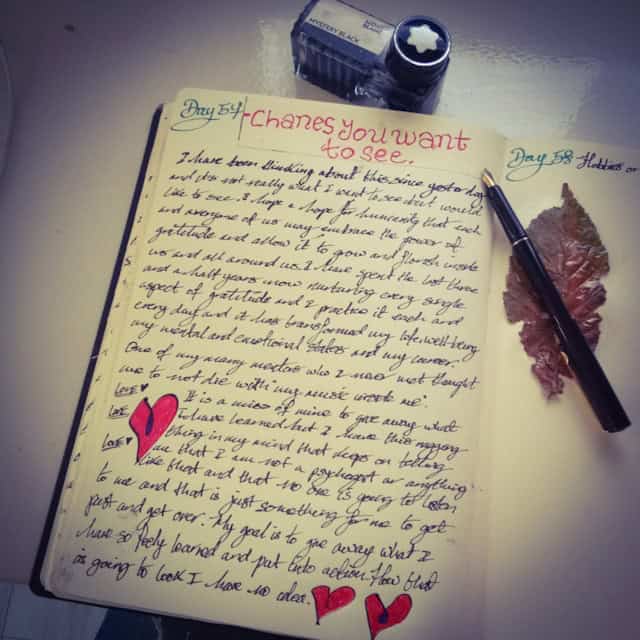 MYSTERY BLACK
MONT
BLANC
Day 57
Chanes you want
to see.
I have been thinking about this since yesterday
and it's not really what I want to see but would
like to see. I hope a hope for humanity that each
and everyone of us may embrace the power of
gratitude and allow it to grow and florish inside
us and all around us. I have spent the last three
and a half years now nurturing every single
aspect of gratitude and I practice it each and
every day and it has transformed my life, well-being
my mental and emotional states and my career.
One of my many mentors who I never met thought
me to not die with "my music inside me".
LOVE
LOVE
LOVE
It is a miss of mine to give away what
I have learned but I have this nagging
thing in my mind that keps on telling
me that I am not a psychogest or anything
like that and that no one is going to listen
to me and that is just something for me to get
past and get over. My goal is to give away what I
have so feely learned and put into action. How that
is going to look I have no idea.
Day 58 Hobbies or